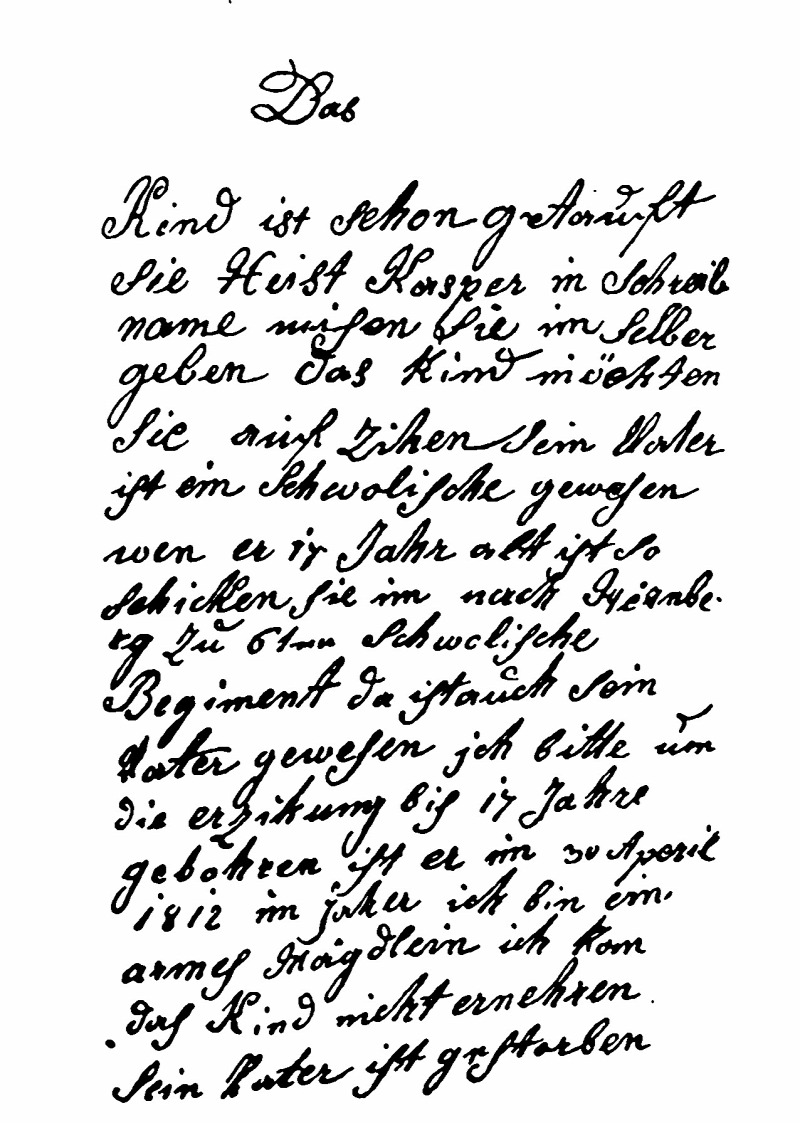 Das
Kind ist schon getauft
Sie Heist Kasper in Schreib
name misen Sie im Selber
geben das Kind möchten
Sie auf Zihen Sein Vater
ist ein Schwolische gewesen
wen er 17 Jahr alt ist so
schicken sie im nach Nirnbe-
rg Zu 6ten Schwolische
Begiment da ist auch sein
Vater gewesen ich bitte um
die erzikung bis 17 Jahre
gebohren ist er im 30 Aperil
1812 im jaher ich bin ein
armes Mägdlein ich kan
das Kind nicht ernehren
Sein Vater ist gestorben